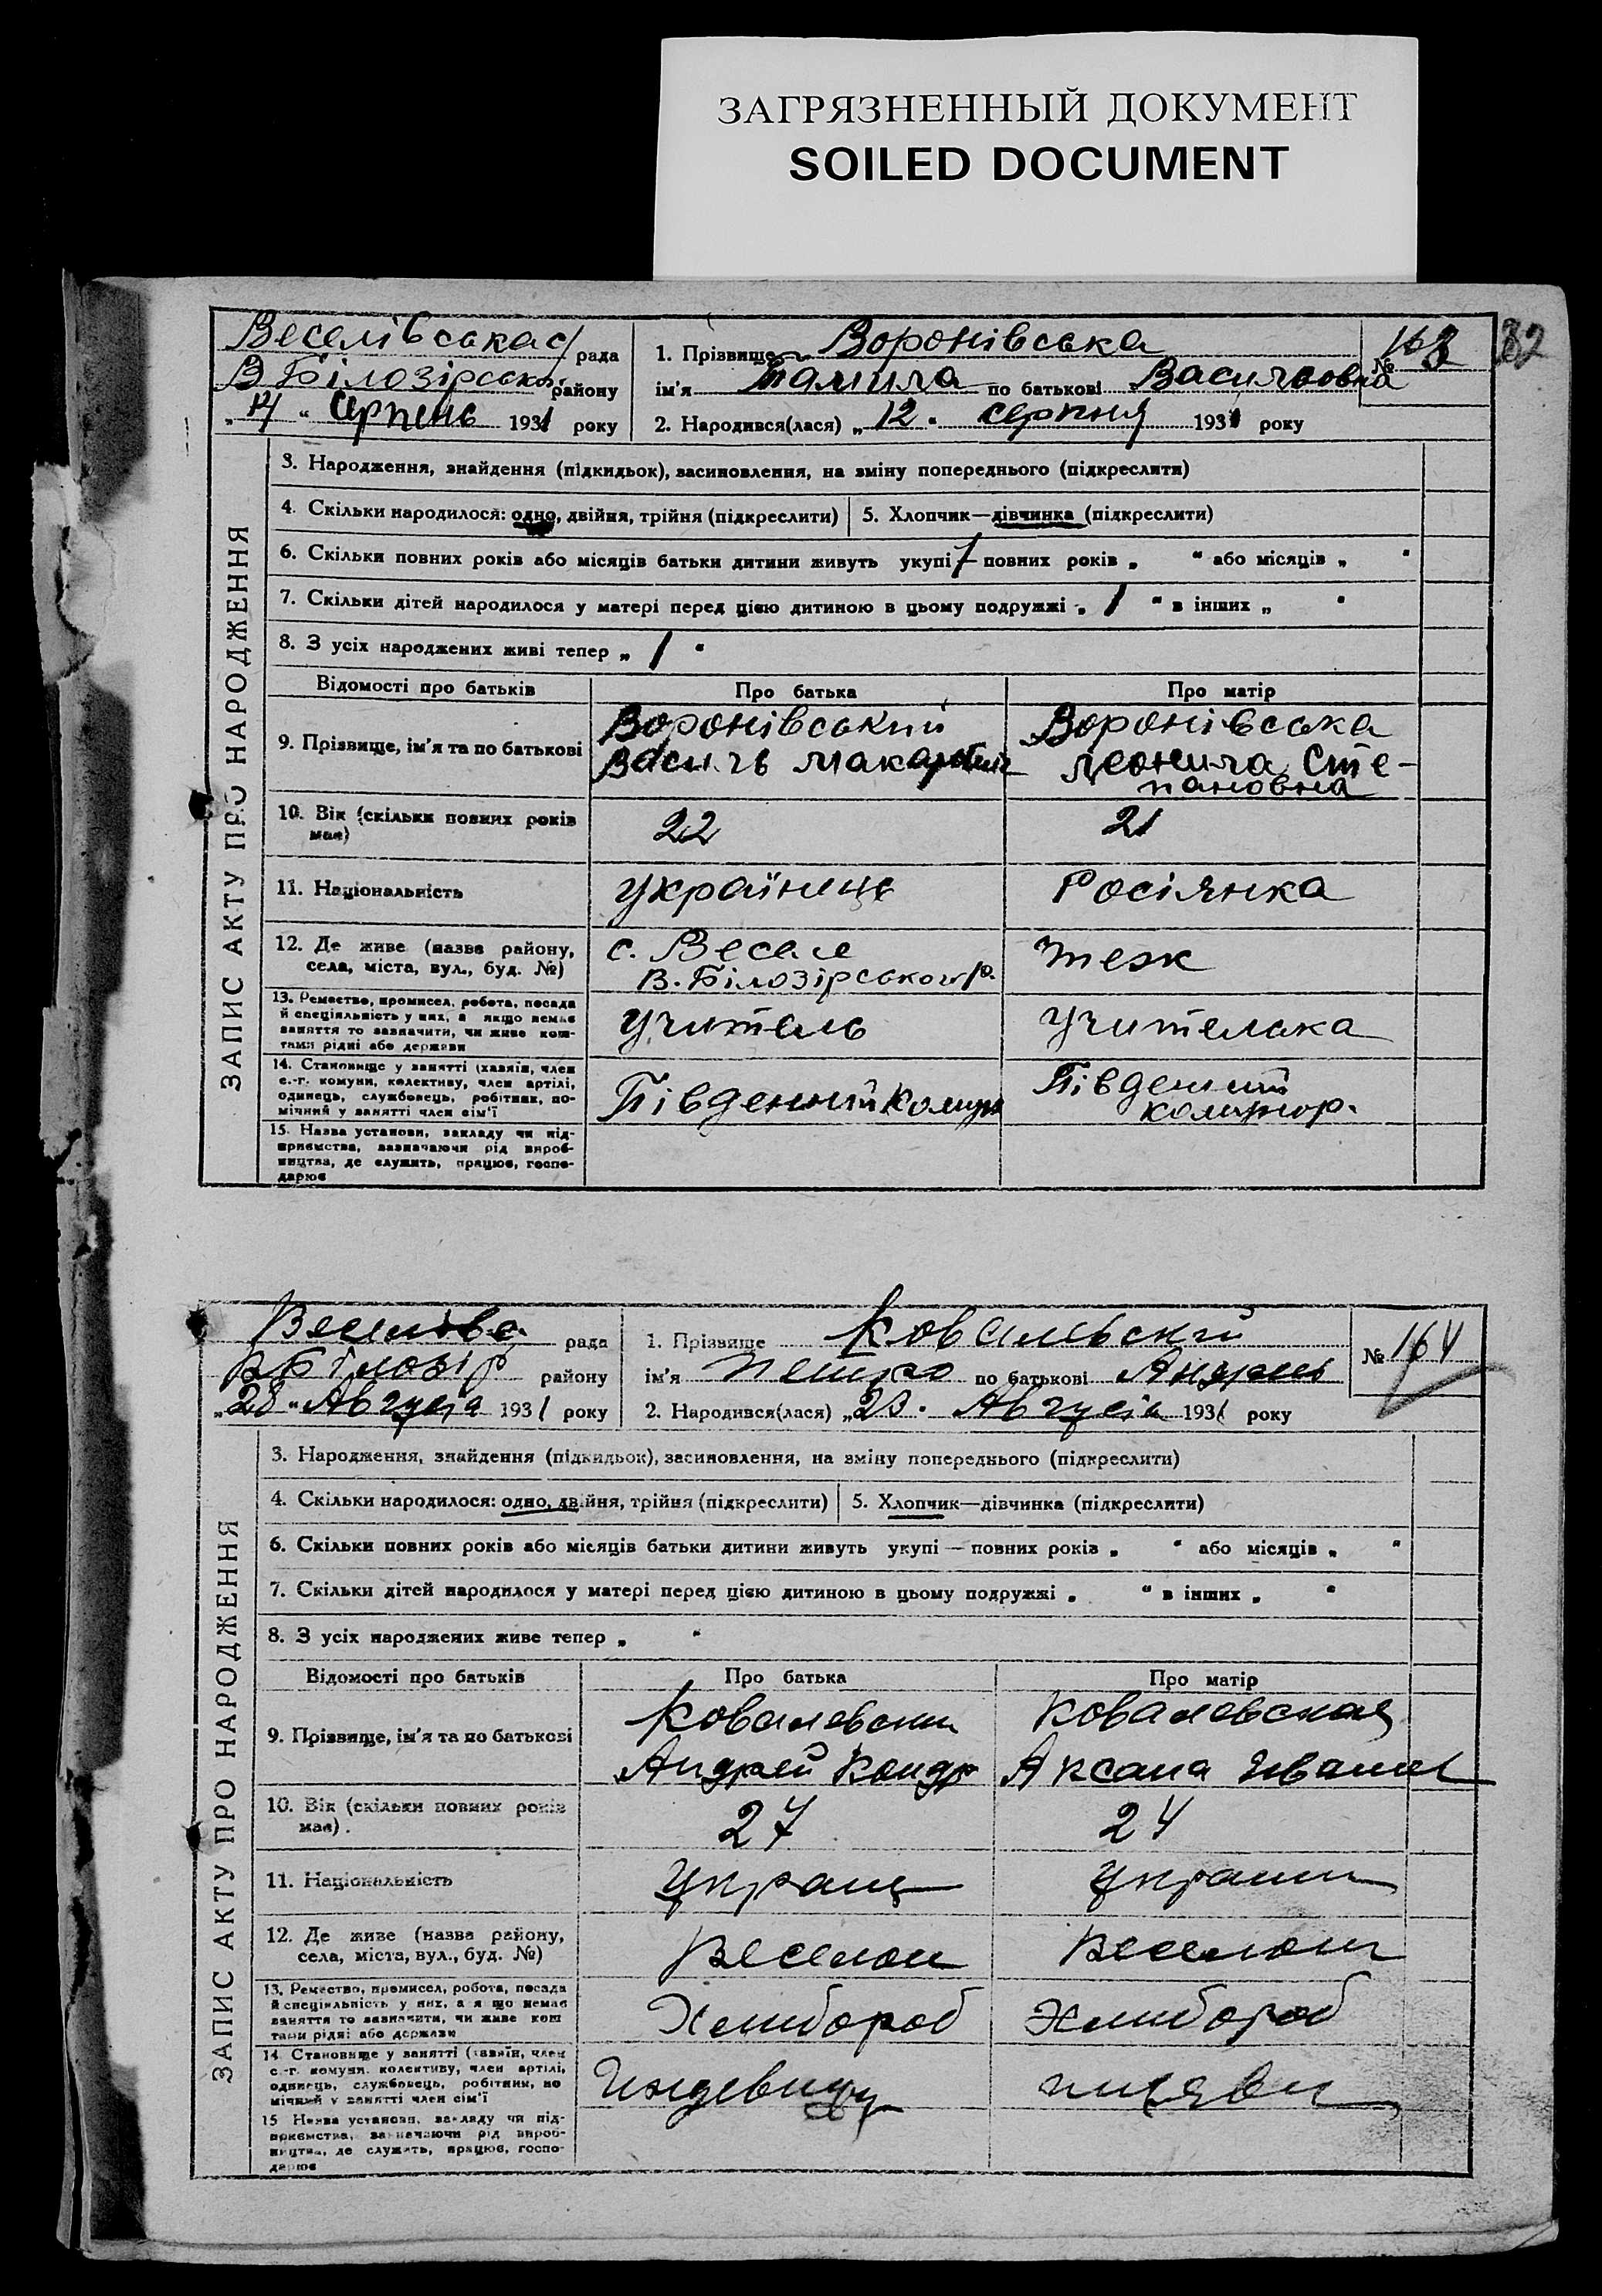 ЗАГРЯЗНЕННЫЙ ДОКУМЕНТ
SOILED DOCUMENT
82
Веселівська с/рада
В Білозірськ. району
" " Серпень 1931 року
1. Прізвище Воронівська
№ 163
ім'я по батькові Васильовна
2. Народився(лася) „12" серпня 1931 року
ЗАПИС АКТУ ПРО НАРОДЖЕННЯ
3. Народження, знайдення (підкидьок), засиновлення, на зміну попереднього (підкреслити)
4. Скільки народилося: одно, двійня, трійня (підкреслити)
5. Хлопчик—дівчинка (підкреслити)
6. Скільки повних років або місяців батьки дитини живуть укупі — повних років „ " або місяців „ "
7. Скільки дітей народилося у матері перед цією дитиною в цьому подружжі „ 1 " в інших „ "
8. З усіх народжених живі тепер „ 1 "
Відомості про батьків
Про батька
Про матір
9. Прізвище, ім'я та по батькові
Воронівський
Василь Макарович
Воронівська
Леонила Сте-
пановна
10. Вік (скільки повних років
має)
22
21
11. Національність
українець
Росіянка
12. Де живе (назва району,
села, міста, вул., буд. №)
с. Веселе
В. Білозірського р.
теж
13. Ремество, промисел, робота, посада
й спеціяльність у них, а якщо немає
заняття то зазначити, чи живе кош-
тами рідні або держави
учитель
учителька
14. Становище у занятті (хазяїн, член
с.-г. комуни, колективу, член артілі,
одинець, службовець, робітник, по-
мічний у занятті член сім'ї
Південний
Південний
15. Назва установи, закладу чи під-
приємства, зазначаючи рід вироб-
ництва, де служить, працює, госпо-
дарює
рада
В Білозір району
„28" Августа 1931 року
1. Прізвище Ковальский
№ 164
ім'я Петро по батькові
2. Народився(лася) „ " Августа 1931 року
ЗАПИС АКТУ ПРО НАРОДЖЕННЯ
3. Народження, знайдення (підкидьок), засиновлення, на зміну попереднього (підкреслити)
4. Скільки народилося: одно, двійня, трійня (підкреслити)
5. Хлопчик—дівчинка (підкреслити)
6. Скільки повних років або місяців батьки дитини живуть укупі — повних років „ " або місяців „ "
7. Скільки дітей народилося у матері перед цією дитиною в цьому подружжі „ " в інших „ "
8. З усіх народжених живе тепер „ "
Відомості про батьків
Про батька
Про матір
9. Прізвище, ім'я та по батькові
Ковалевский
Андрей Кондр
Ковалевская
Аксана Иван
10. Вік (скільки повних років
має).
27
24
11. Національність
Украин
Украин
12. Де живе (назва району,
села, міста, вул., буд. №)
Веселом
Веселом
13. Ремество, промисел, робота, посада
й спеціяльність у них, а якщо немає
заняття то зазначити, чи живе кош
тами рідні або держави
Хлибороб
Хлибороб
14. Становище у занятті (хазяїн, член
с.-г. комуни, колективу, член артілі,
одинець, службовець, робітник, по
мічний у занятті член сім'ї
15 Назва установи, закладу чи під-
приємства, зазначаючи рід вироб-
ництва, де служить, працює, госпо-
дарює